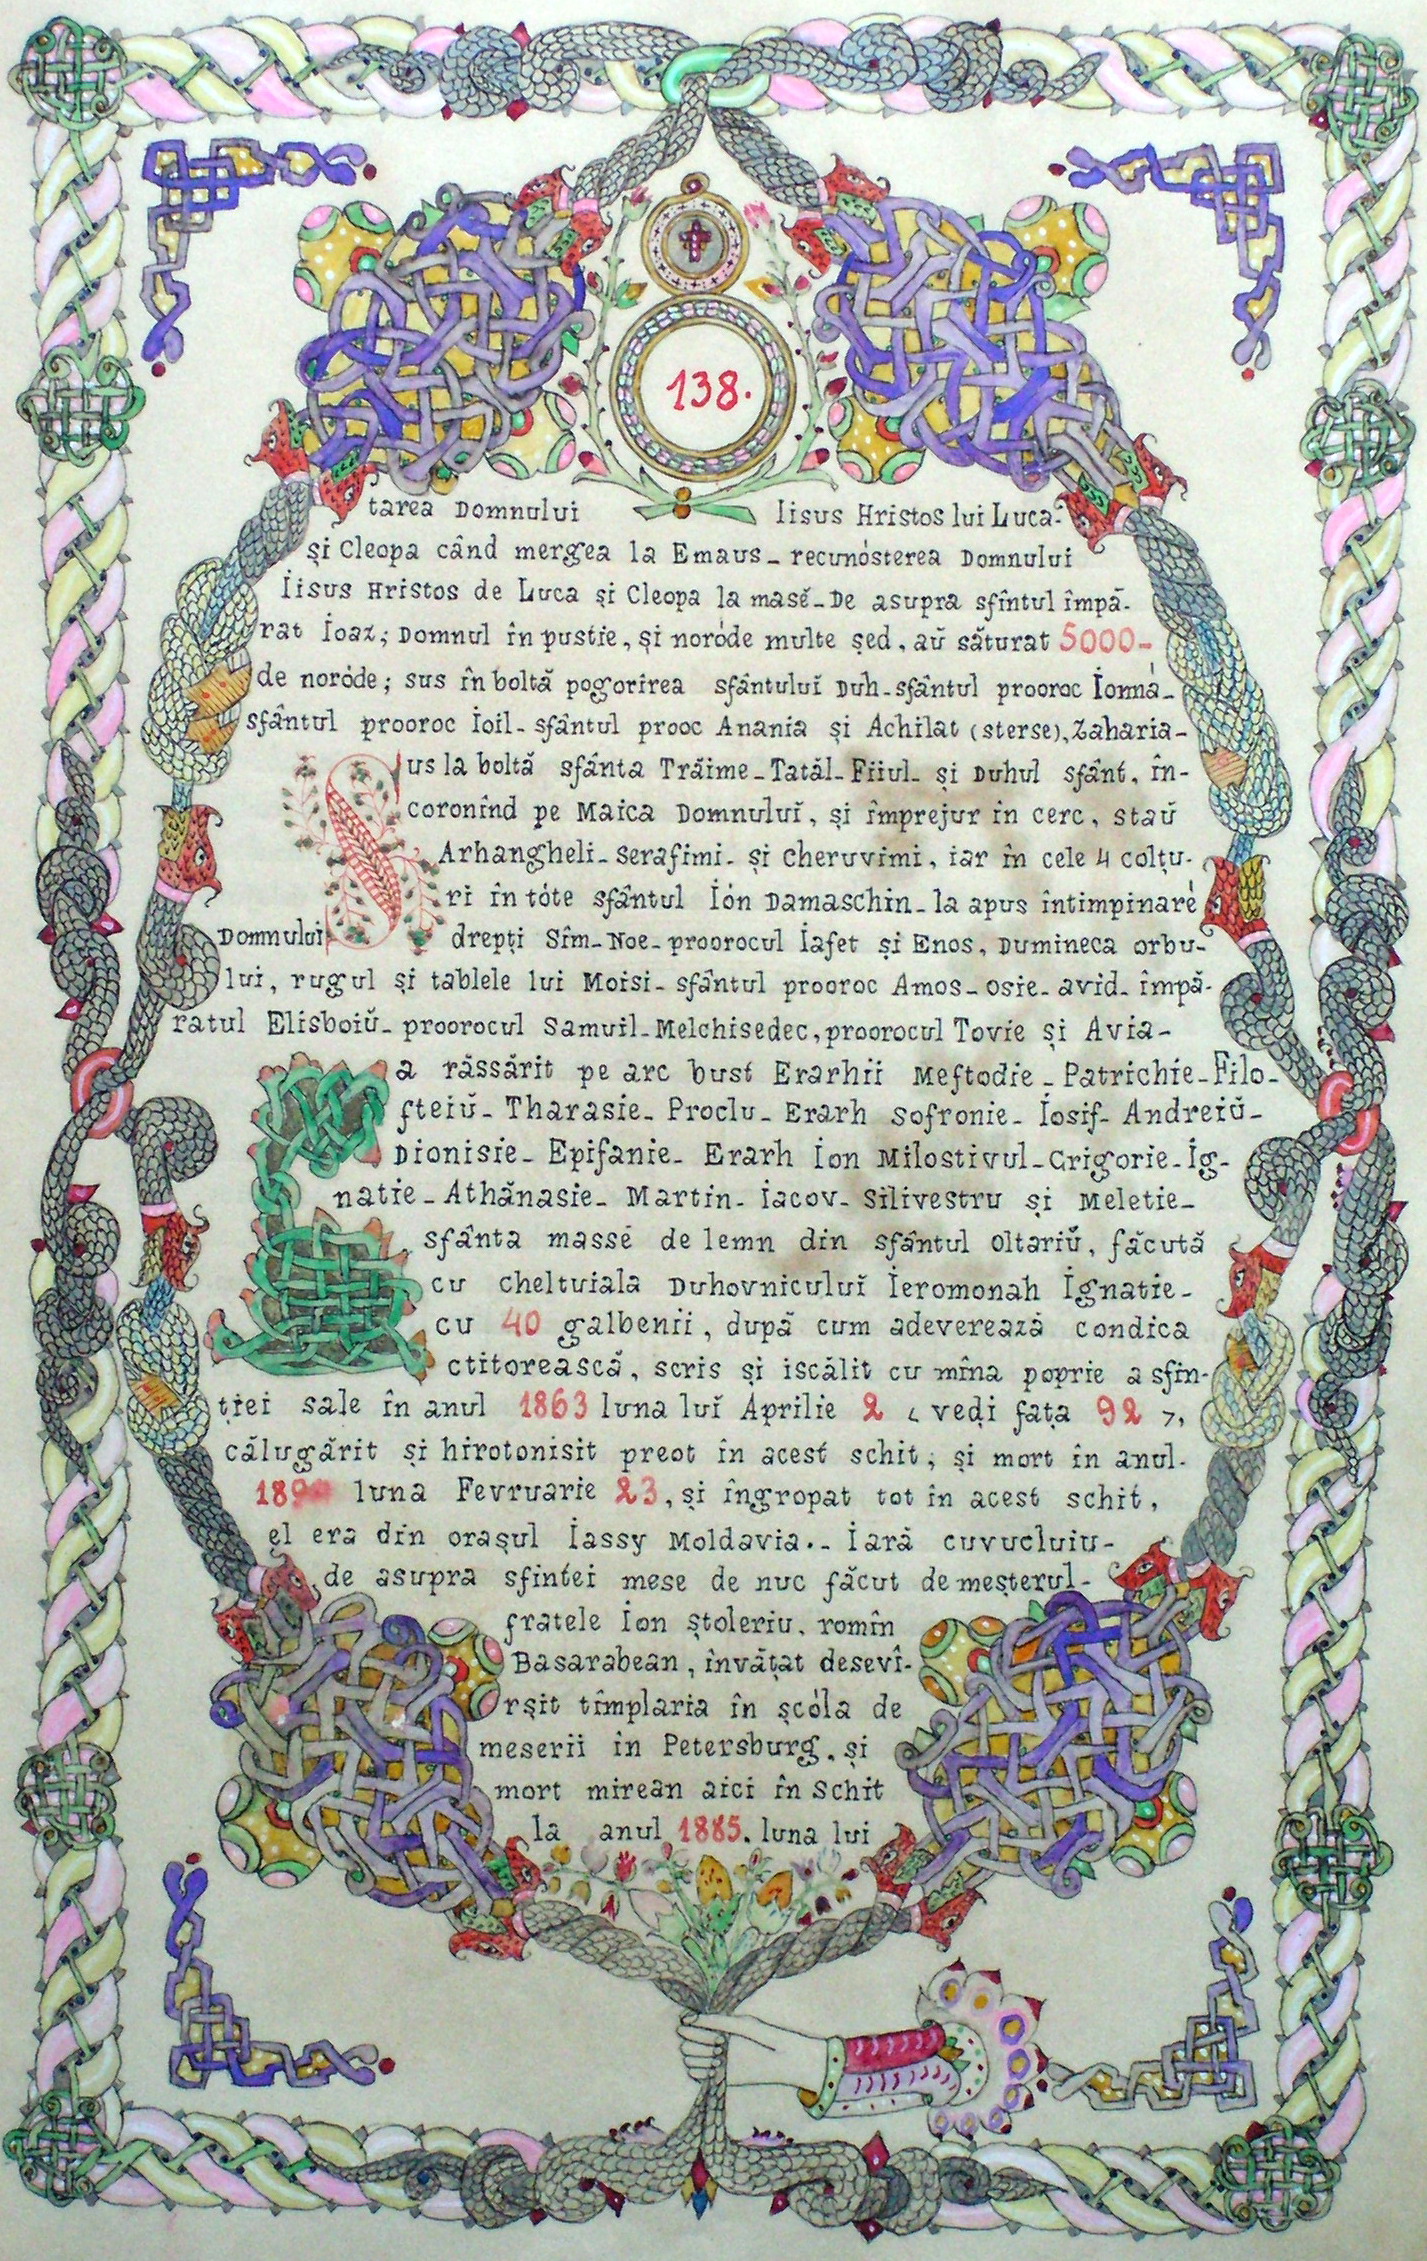 138.
tarea Domnului Iisus Hristos lui Luca-
și Cleopa când mergea la Emaus - recunósterea Domnului
Iisus Hristos de Luca și Cleopa la masĕ - De asupra sfîntul împă-
rat Ioaz; Domnul în pustie, și noróde multe șed, aŭ săturat 5000-
de noróde; sus în boltă pogorîrea sfântuluĭ Duh - sfântul prooroc Ionná-
sfântul prooroc Ioil - sfântul prooc Anania și Achilat (sterse), Zaharia-
Sus la boltă sfânta Trăime - Tatăl - Fiiul - și Duhul sfânt, în-
coronînd pe Maica Domnuluĭ, și împrejur în cerc, staŭ
Arhangheli - serafimi - și cheruvimi, iar în cele 4 colțu-
ri în tóte sfântul Ión Damaschin - la apus întimpinare
Domnului drepți Sîm - Noe - proorocul Iafet și Enos, Dumineca orbu-
lui, rugul și tablele lui Moisi - sfântul prooroc Amos - osie - avid - împă-
ratul Elisboiŭ - proorocul Samuil - Melchisedec, proorocul Tovie și Avia-
La răssărit pe arc bust Erarhii Meftodie - Patrichie - Filo-
fteiŭ - Tharasie - Proclu - Erarh Sofronie - Iosif - Andreiŭ-
Dionisie - Epifanie - Erarh Ion Milostivul - Grigorie - Ig-
natie - Athănasie - Martin - iacov - Silivestru și Meletie-
sfânta massĕ de lemn din sfântul oltariŭ, făcută
cu cheltuiala Duhovniculuĭ Ieromonah Ignatie-
cu 40 galbenii, după cum adeverează condica
ctitorească, scris și iscălit cu mîna poprie a sfin-
ției sale în anul 1863 luna luĭ Aprilie 2 < vedi fața 92 >,
călugărit și hirotonisit preot în acest schit; și mort în anul-
luna Fevruarie 23, și îngropat tot în acest schit,
el era din orașul Iassy Moldavia.- Iară cuvucluiu-
de asupra sfintei mese de nuc făcut de meșterul-
fratele Ion Ștoleriu, romîn
Basarabean, învățat desevî-
rșit tîmplaria în șcóla de
meserii în Petersburg, și
mort mirean aici în Schit
la anul 1885. luna lui